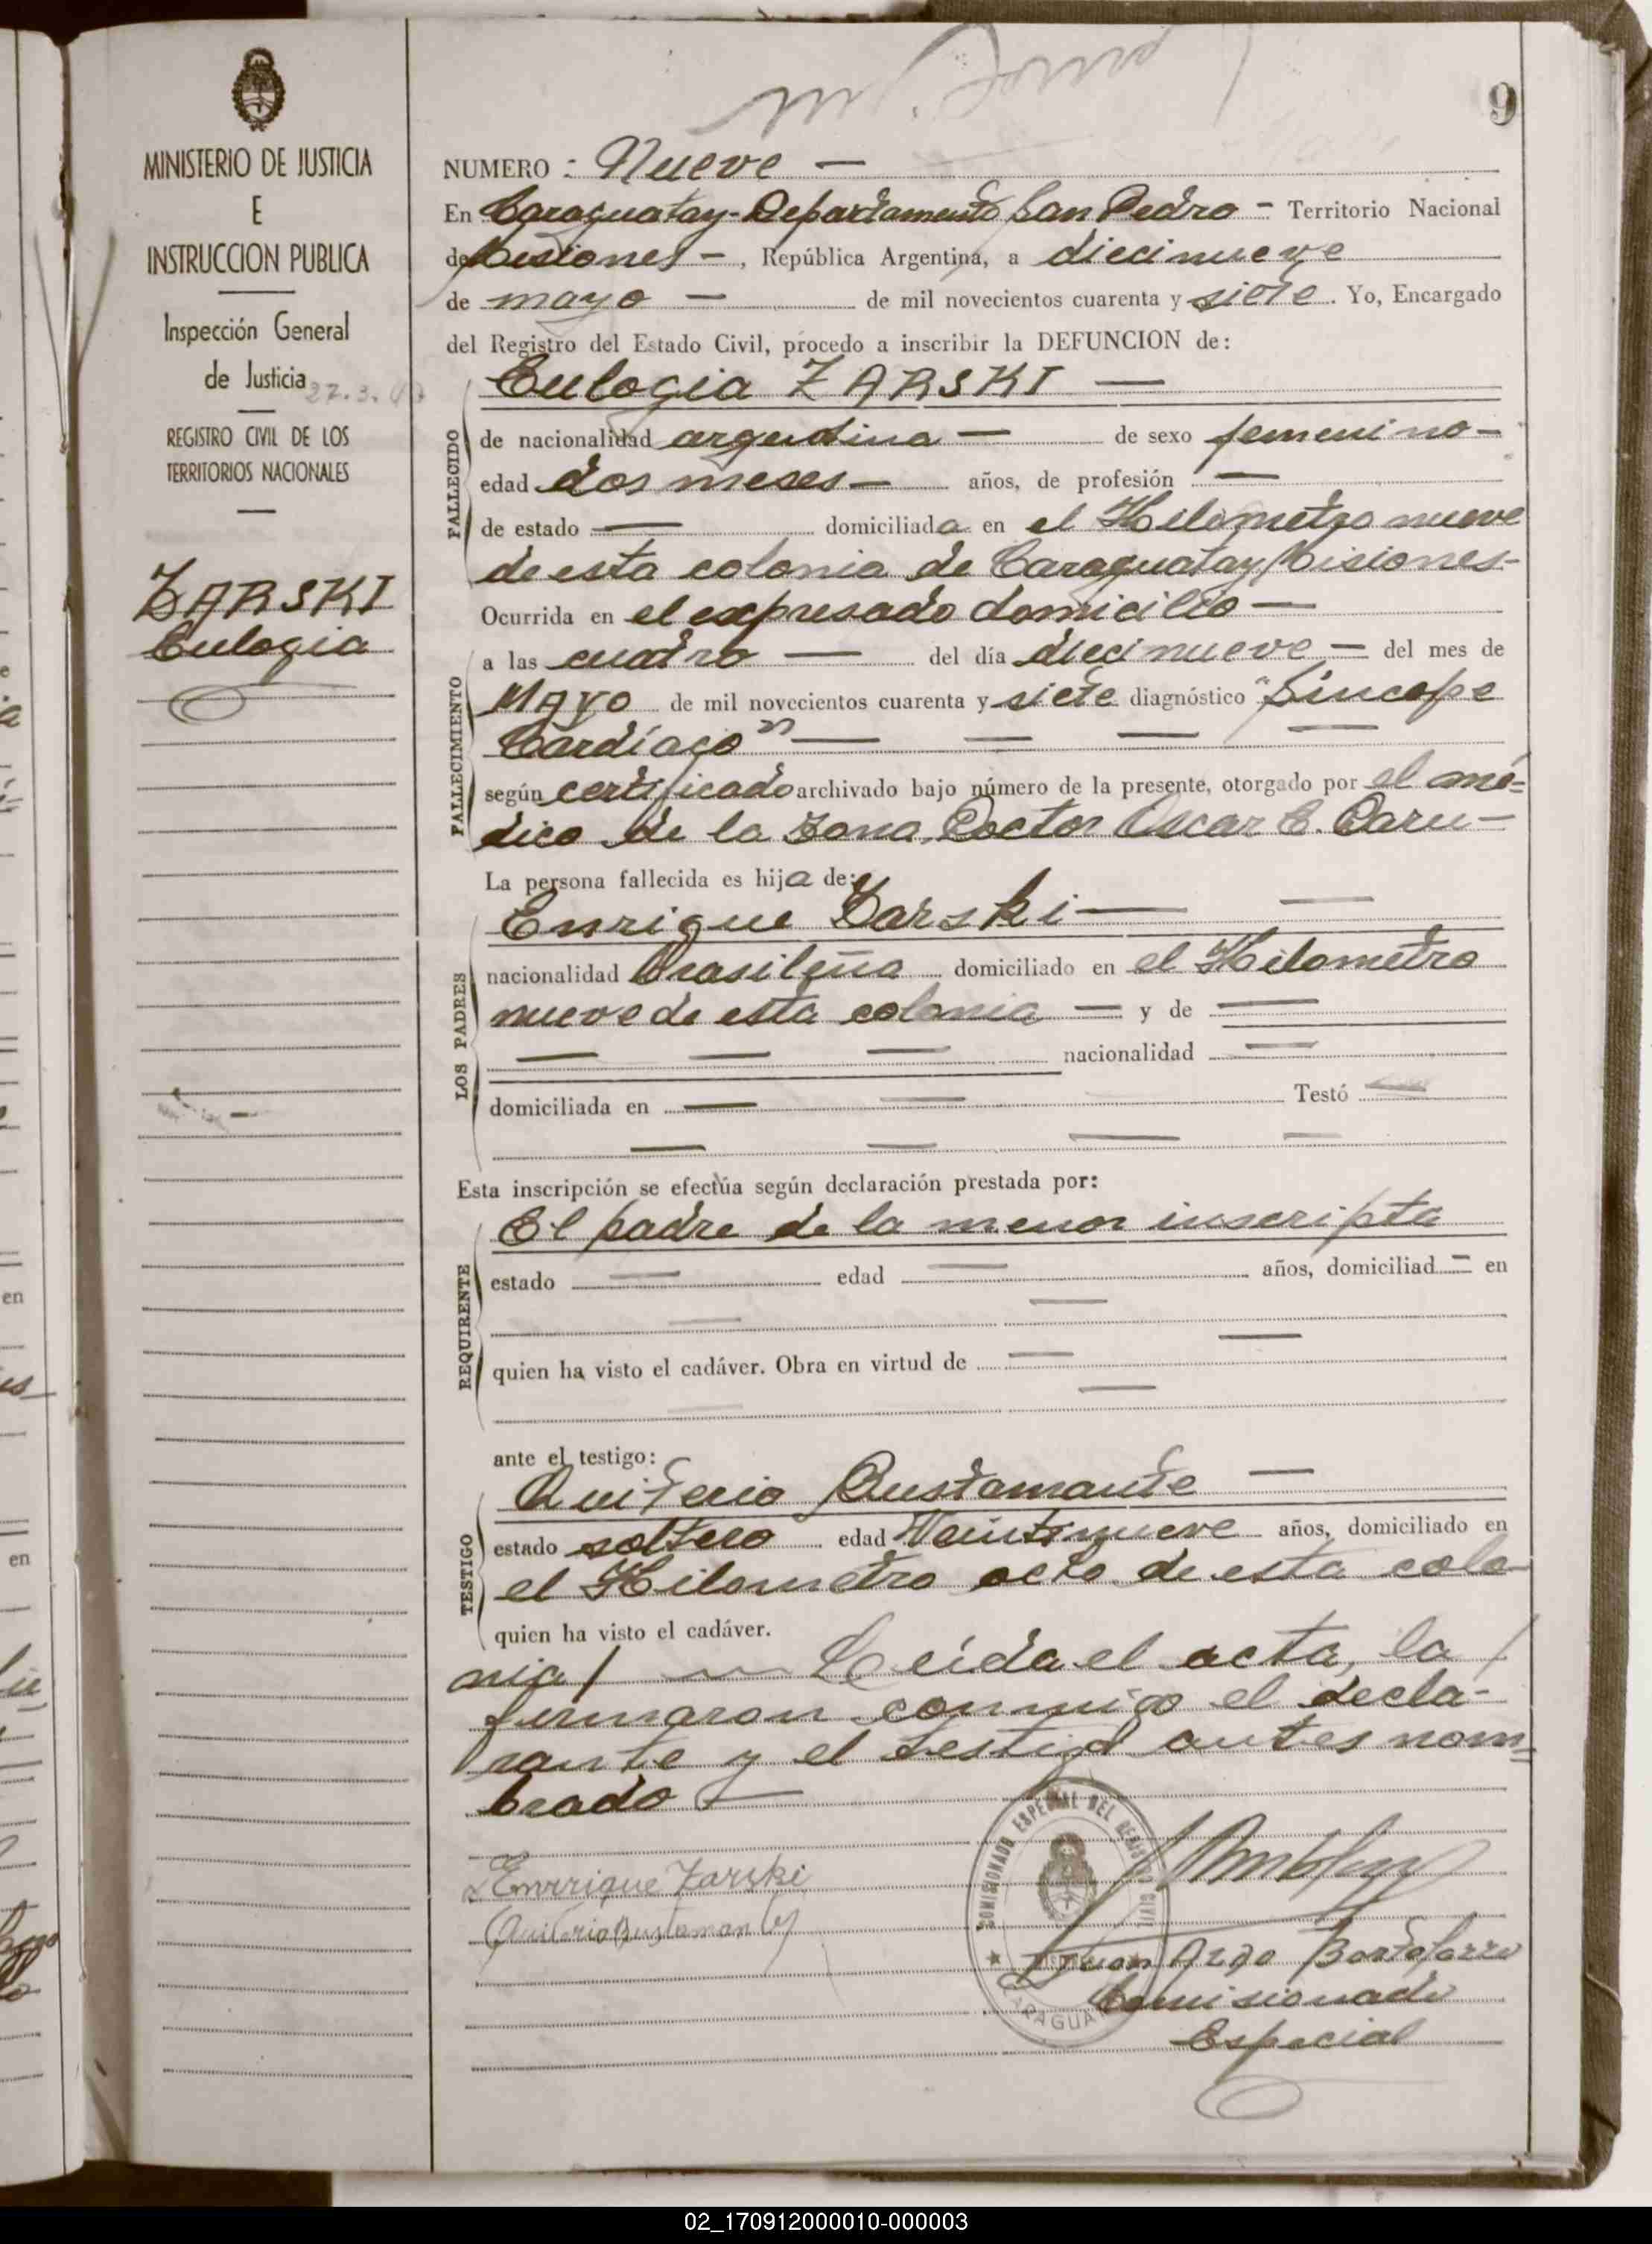 9
MINISTERIO DE JUSTICIA
E
INSTRUCCION PUBLICA
Inspección General
de Justicia
27.3.47
REGISTRO CIVIL DE LOS
TERRITORIOS NACIONALES
ZARSKI
Eulogia
NUMERO : Nueve —
En Caraguatay - Departamento San Pedro - Territorio Nacional
de Misiones - , República Argentina, a diecinueve
de mayo — de mil novecientos cuarenta y siete. Yo, Encargado
del Registro del Estado Civil, procedo a inscribir la DEFUNCION de:
Eulogia ZARSKI —
FALLECIDO
de nacionalidad argentina — de sexo femenino -
edad dos meses — años, de profesión —
de estado — domiciliada en el Kilometro nueve
de esta colonia de Caraguatay Misiones-
Ocurrida en el expresado domicilio —
FALLECIMIENTO
a las cuatro — del día diecinueve — del mes de
Mayo de mil novecientos cuarenta y siete diagnóstico "Síncope
Cardíaco" — — — —
según certificado archivado bajo número de la presente, otorgado por el mé=
dico de la zona, Doctor Oscar E. Daru —
La persona fallecida es hija de:
LOS PADRES
Enrique Zarski — —
nacionalidad brasileña domiciliado en el Kilometro
nueve de esta colonia — y de —
— — — nacionalidad —
domiciliada en — — Testó —
— — — —
Esta inscripción se efectúa según declaración prestada por:
REQUIRENTE
El padre de la menor inscripta
estado — edad — años, domiciliad - en
— —
quien ha visto el cadáver. Obra en virtud de —
— —
ante el testigo:
TESTIGO
Quiterio Bustamante —
estado soltero edad Veintinueve años, domiciliado en
el Kilometro ocho de esta colo
quien ha visto el cadáver.
nia/ — Leída el acta, la /
firmaron conmigo el decla-
rante y el testigo antes nom=
brado —
Enrrique Zarski
Quiterio Bustamante
COMISIONADO ESPECIAL DEL REGISTRO CIVIL
CARAGUATAY
Juan
Comisionado
Especial
02_170912000010-000003